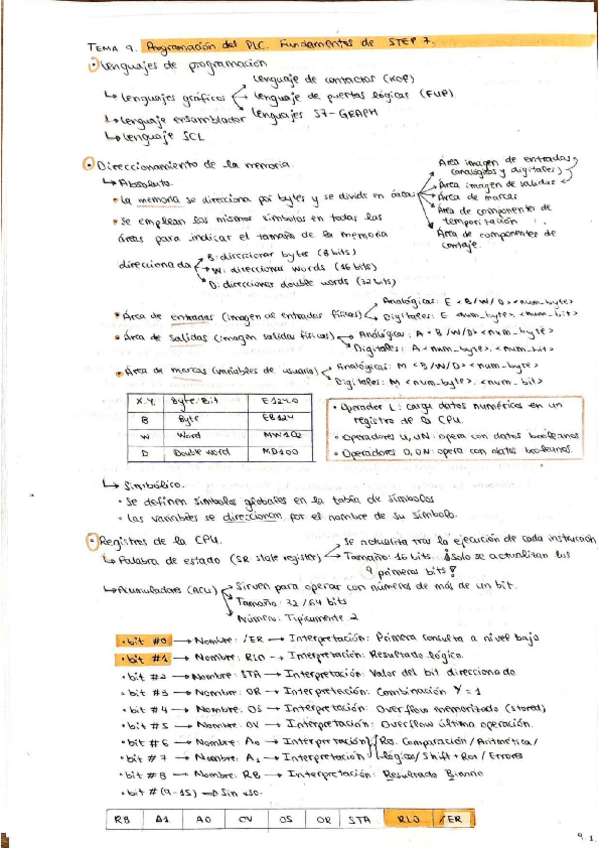 TEMA 9. Programación del PLC. Fundamentos de STEP 7.
• Lenguajes de programación
↳ Lenguajes gráficos
Lenguaje de contactos (KOP)
Lenguaje de puertas lógicas (FUP)
Lenguajes S7-GRAPH
↳ Lenguaje ensamblador
↳ Lenguaje SCL
• Direccionamiento de la memoria.
↳ Absoluto.
• La memoria se direciona por bytes y se divide en áreas
Área imagen de entradas
(analógicas y digitales)
Área imagen de salidas
Área de marcas
Área de componentes de
temporización
Área de componentes de
contaje.
• Se emplean los mismos símbolos en todas las
áreas para indicar el tamaño de la memoria
direccionada
B: direccionar bytes (8 bits)
W: direccionar words (16 bits)
D: direccionar double words (32 bits)
• Área de entradas (imagen de entradas físicas)
Analógicas: E <B/W/D><num_byte>
Digitales: E <num_byte>.<num_bit>
• Área de salidas (imagen salidas físicas)
Analógica: A <B/W/D><num_byte>
Digitales: A <num_byte>.<num_bit>
• Área de marcas (variables de usuario)
Analógicas: M <B/W/D><num_byte>
Digitales: M <num_byte>.<num_bit>
X.Y. Byte.Bit E124.0
B Byte EB124
W Word MW102
D Double word MD100
• Operador L: carga datos numéricos en un
registro de la CPU.
• Operadores U, UN: opera con datos booleanos
• Operadores O, ON: opera con datos booleanos.
↳ Simbólico.
• Se definen símbolos globales en la tabla de símbolos
• Las variables se direccionan por el nombre de su símbolo.
• Registros de la CPU.
↳ Palabra de estado (SR state register)
Se actualiza tras la ejecución de cada instrucción
Tamaño: 16 bits. ¡Solo se actualizan los
9 primeros bits!
↳ Acumuladores (ACU)
Sirven para operar con números de más de un bit.
Tamaño: 32/64 bits
Número: Típicamente 2
• bit #0 → Nombre: /ER → Interpretación: Primera consulta a nivel bajo
• bit #1 → Nombre: RLO → Interpretación: Resultado lógico.
• bit #2 → Nombre: STA → Interpretación: Valor del bit direccionado.
• bit #3 → Nombre: OR → Interpretación: Combinación Y = 1
• bit #4 → Nombre: OS → Interpretación: Overflow memorizado (stored)
• bit #5 → Nombre: OV → Interpretación: Overflow última operación.
• bit #6 → Nombre: A0 → Interpretación
• bit #7 → Nombre: A1 → Interpretación
Res. Comparación / Aritmética /
Lógica / Shift + Rot / Errores
• bit #8 → Nombre: RB → Interpretación: Resultado Binario
• bit #(9-15) → Sin uso.
RB A1 A0 OV OS OR STA RLO /ER
9.1.